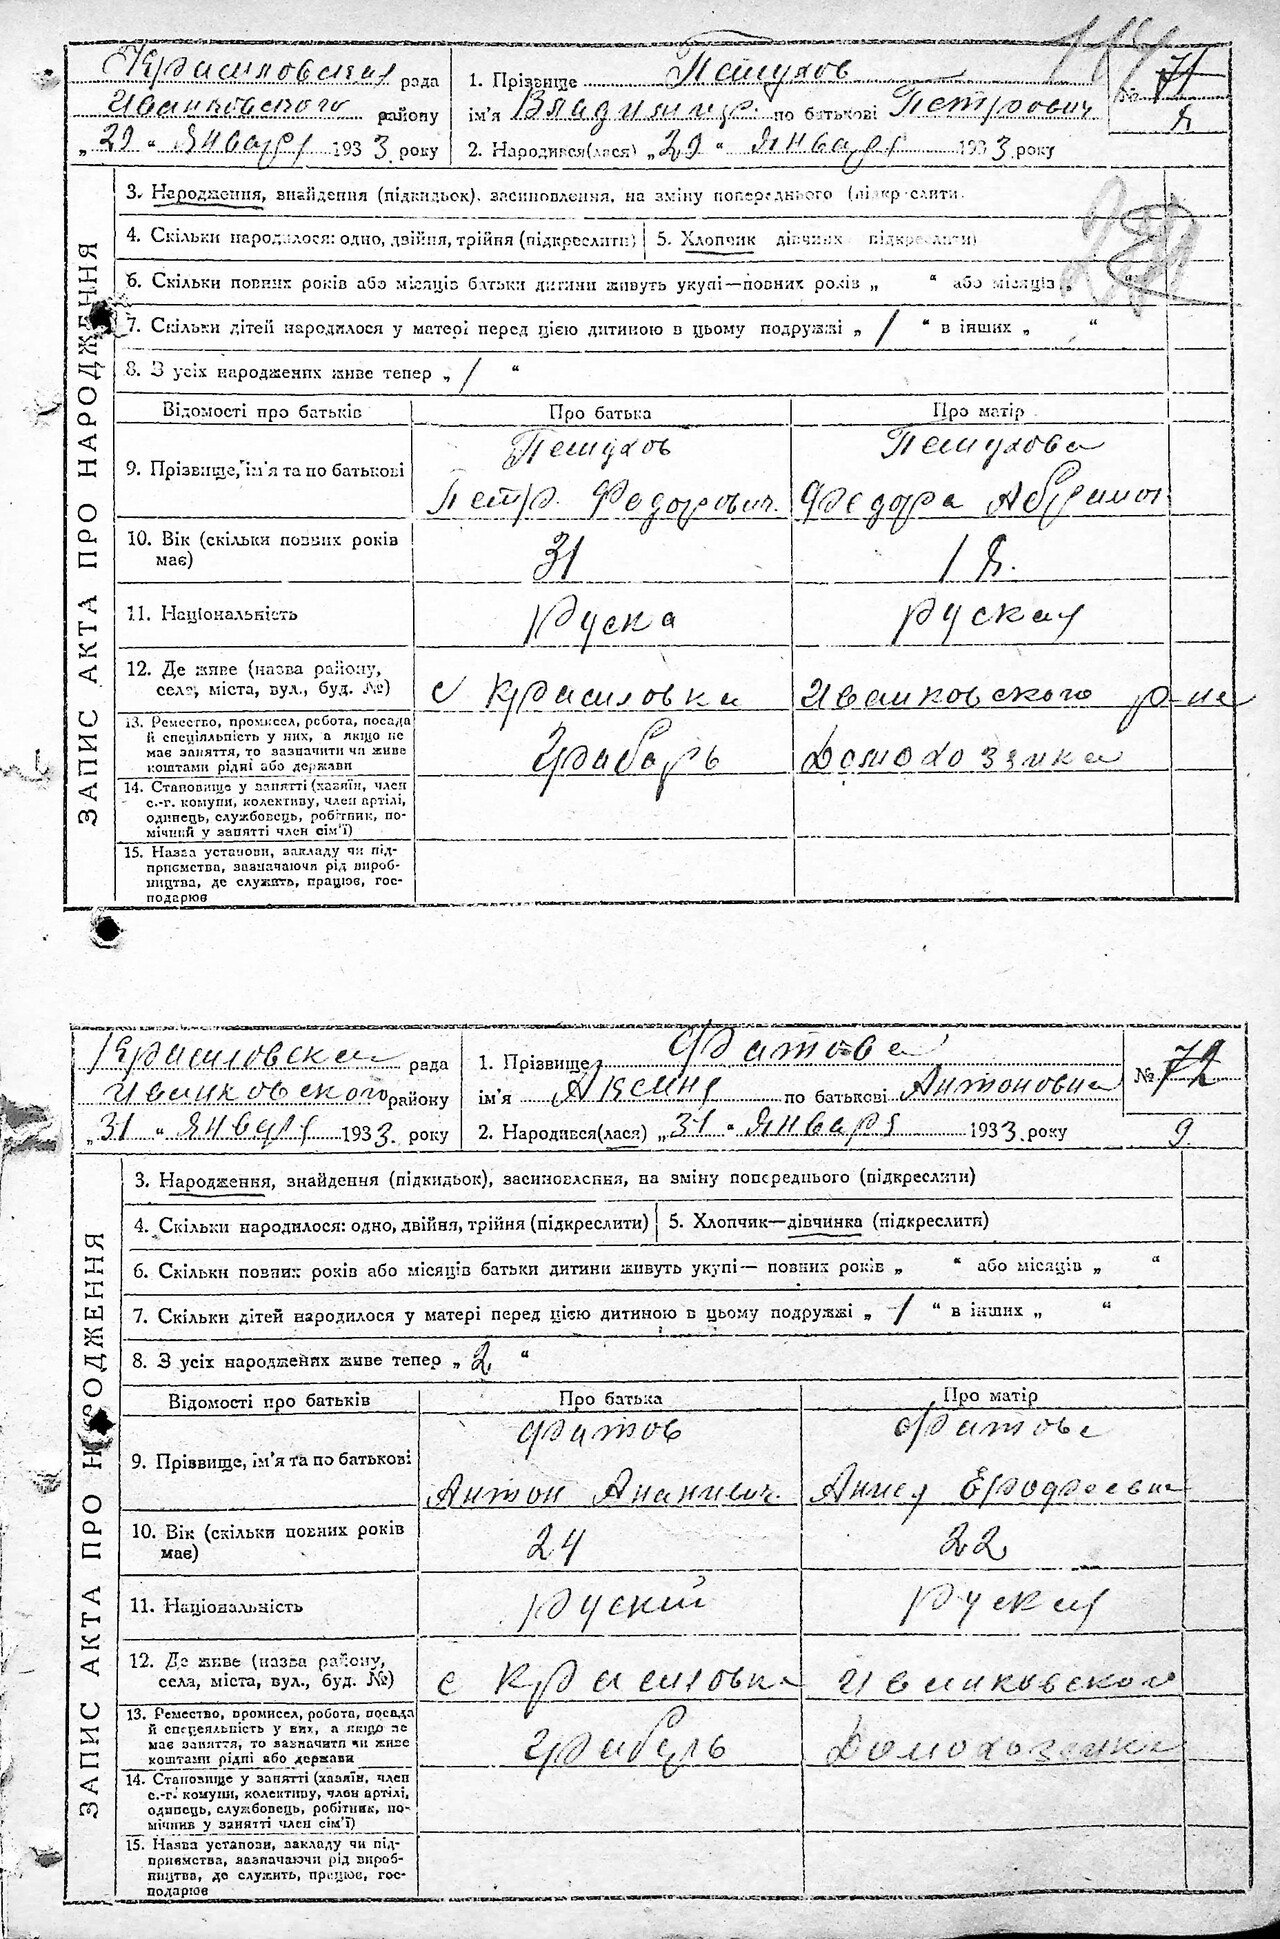 ЗАПИС АКТА ПРО НАРОДЖЕННЯ
Красиловская рада
Иванковского району
„29“ Января 1933 року
1. Прізвище Петухов
ім'я Владимир по батькові Петрович
2. Народився(лася) „29“ Января 1933 року
№ 71
8
3. Народження, знайдення (підкидьок), засиновлення, на зміну попереднього (підкреслити)
4. Скільки народилося: одно, двійня, трійня (підкреслити)
5. Хлопчик дівчинка підкреслити)
6. Скільки повних років або місяців батьки дитини живуть укупі—повних років „ “ або місяців „
7. Скільки дітей народилося у матері перед цією дитиною в цьому подружжі „ 1 “ в інших „ “
8. З усіх народжених живе тепер „ 1 “
Відомості про батьків Про батька Про матір
9. Прізвище, ім'я та по батькові
Петухов Петухова
Петр Федорович Федора Абрамов
10. Вік (скільки повних років має) 31 18.
11. Національність Руска руская
12. Де живе (назва району, села, міста, вул., буд. №) с Красиловка Иванковского р-на
13. Ремество, промисел, робота, посада
й спеціяльність у них, а якщо не
має заняття, то зазначити чи живе
коштами рідні або держави
Грабарь Домохозяика
14. Становище у занятті (хазяїн, член
с.-г. комуни, колективу, член артілі,
одинець, службовець, робітник, по-
мічний у занятті член сім'ї)
15. Назва установи, закладу чи під-
приємства, зазначаючи рід вироб-
ництва, де служить, працює, гос-
подарює
ЗАПИС АКТА ПРО НАРОДЖЕННЯ
Красиловска рада
Иванковского району
„31“ Января 1933 року
1. Прізвище Фатова
ім'я Аксиня по батькові Антоновна
2. Народився(лася) „31“ Января 1933 року
№ 72
9
3. Народження, знайдення (підкидьок), засиновлення, на зміну попереднього (підкреслити)
4. Скільки народилося: одно, двійня, трійня (підкреслити)
5. Хлопчик—дівчинка (підкреслити)
6. Скільки повних років або місяців батьки дитини живуть укупі— повних років „ “ або місяців „ “
7. Скільки дітей народилося у матері перед цією дитиною в цьому подружжі „ 1 “ в інших „ “
8. З усіх народжених живе тепер „ 2 “
Відомості про батьків Про батька Про матір
9. Прізвище, ім'я та по батькові
Фатов Фатова
Антон Ананиевич Ерофеевна
10. Вік (скільки повних років має) 24 22
11. Національність Руский Руская
12. Де живе (назва району, села, міста, вул., буд. №) с Красиловка Иванковского
13. Ремество, промисел, робота, посада
й спецеяльність у них, а якщо не
має заняття, то зазначити чи живе
коштами рідні або держави
Грабарь Домохозяика
14. Становище у занятті (хазяїн, член
с.-г. комуни, колективу, член артілі,
одинець, службовець, робітник, по-
мічнив у занятті член сім'ї)
15. Назва установи, закладу чи під-
приємства, зазначаючи рід вироб-
ництва, де служить, працює, гос-
подарює